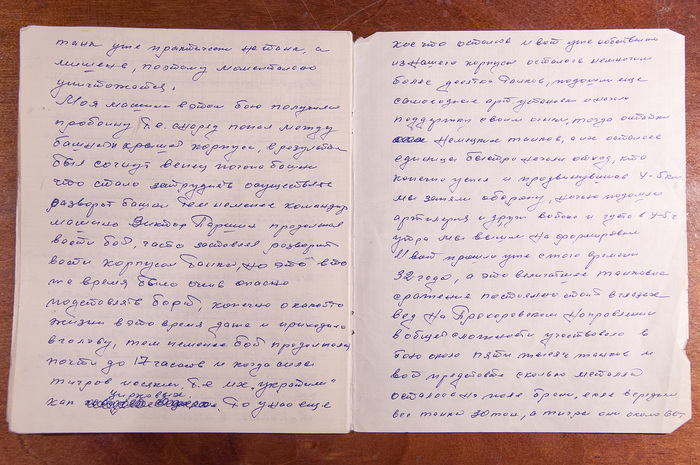 танк уже практически не танк, а
мишень, поэтому моментально
уничтожается.
Моя машина в этом бою получила
пробоину т.е. снаряд попал между
башней и крышей корпуса, в результате
был согнут венец погона башни
что стало затруднять осуществлять
разворот башни. Тем не менее командир
машины Виктор Паршин продолжал
вести бой, часто заставляя разворот
вести корпусом танка, но это в то
же время было очень опасно
подставлять борт, конечно о какой то
жизни в это время даже и не приходило
в голову, тем не менее бой продолжался
почти до 17 часов и когда силы
тигров иссякли т.е. их "укратили"
как цирковых. То у нас еще
кое что осталось и вот уже собственно
из нашего корпуса осталось немногим
более десятка танков, подошли еще
самоходные арт установки
поддержали своим огнем, тогда остатки
немецких танков, а их остались
единицы быстро начали отход, кто
конечно успел и продвинувшись 4-5 км
мы заняли оборону, ночью подошла
артиллерия и другие войска и где то в 4-5 ч
утра мы вышли на формировку
И вот прошло уже с того времени
32 года, а это величайшее танковое
сражение постоянно стоит в глазах
вед на Прохоровском направлении
в общей сложности участвовало в
бою около пяти тысяч танков и
вот представте сколько металла
осталось на поле брани, если
вес танка 30 тон, а тигры они около 60 т.